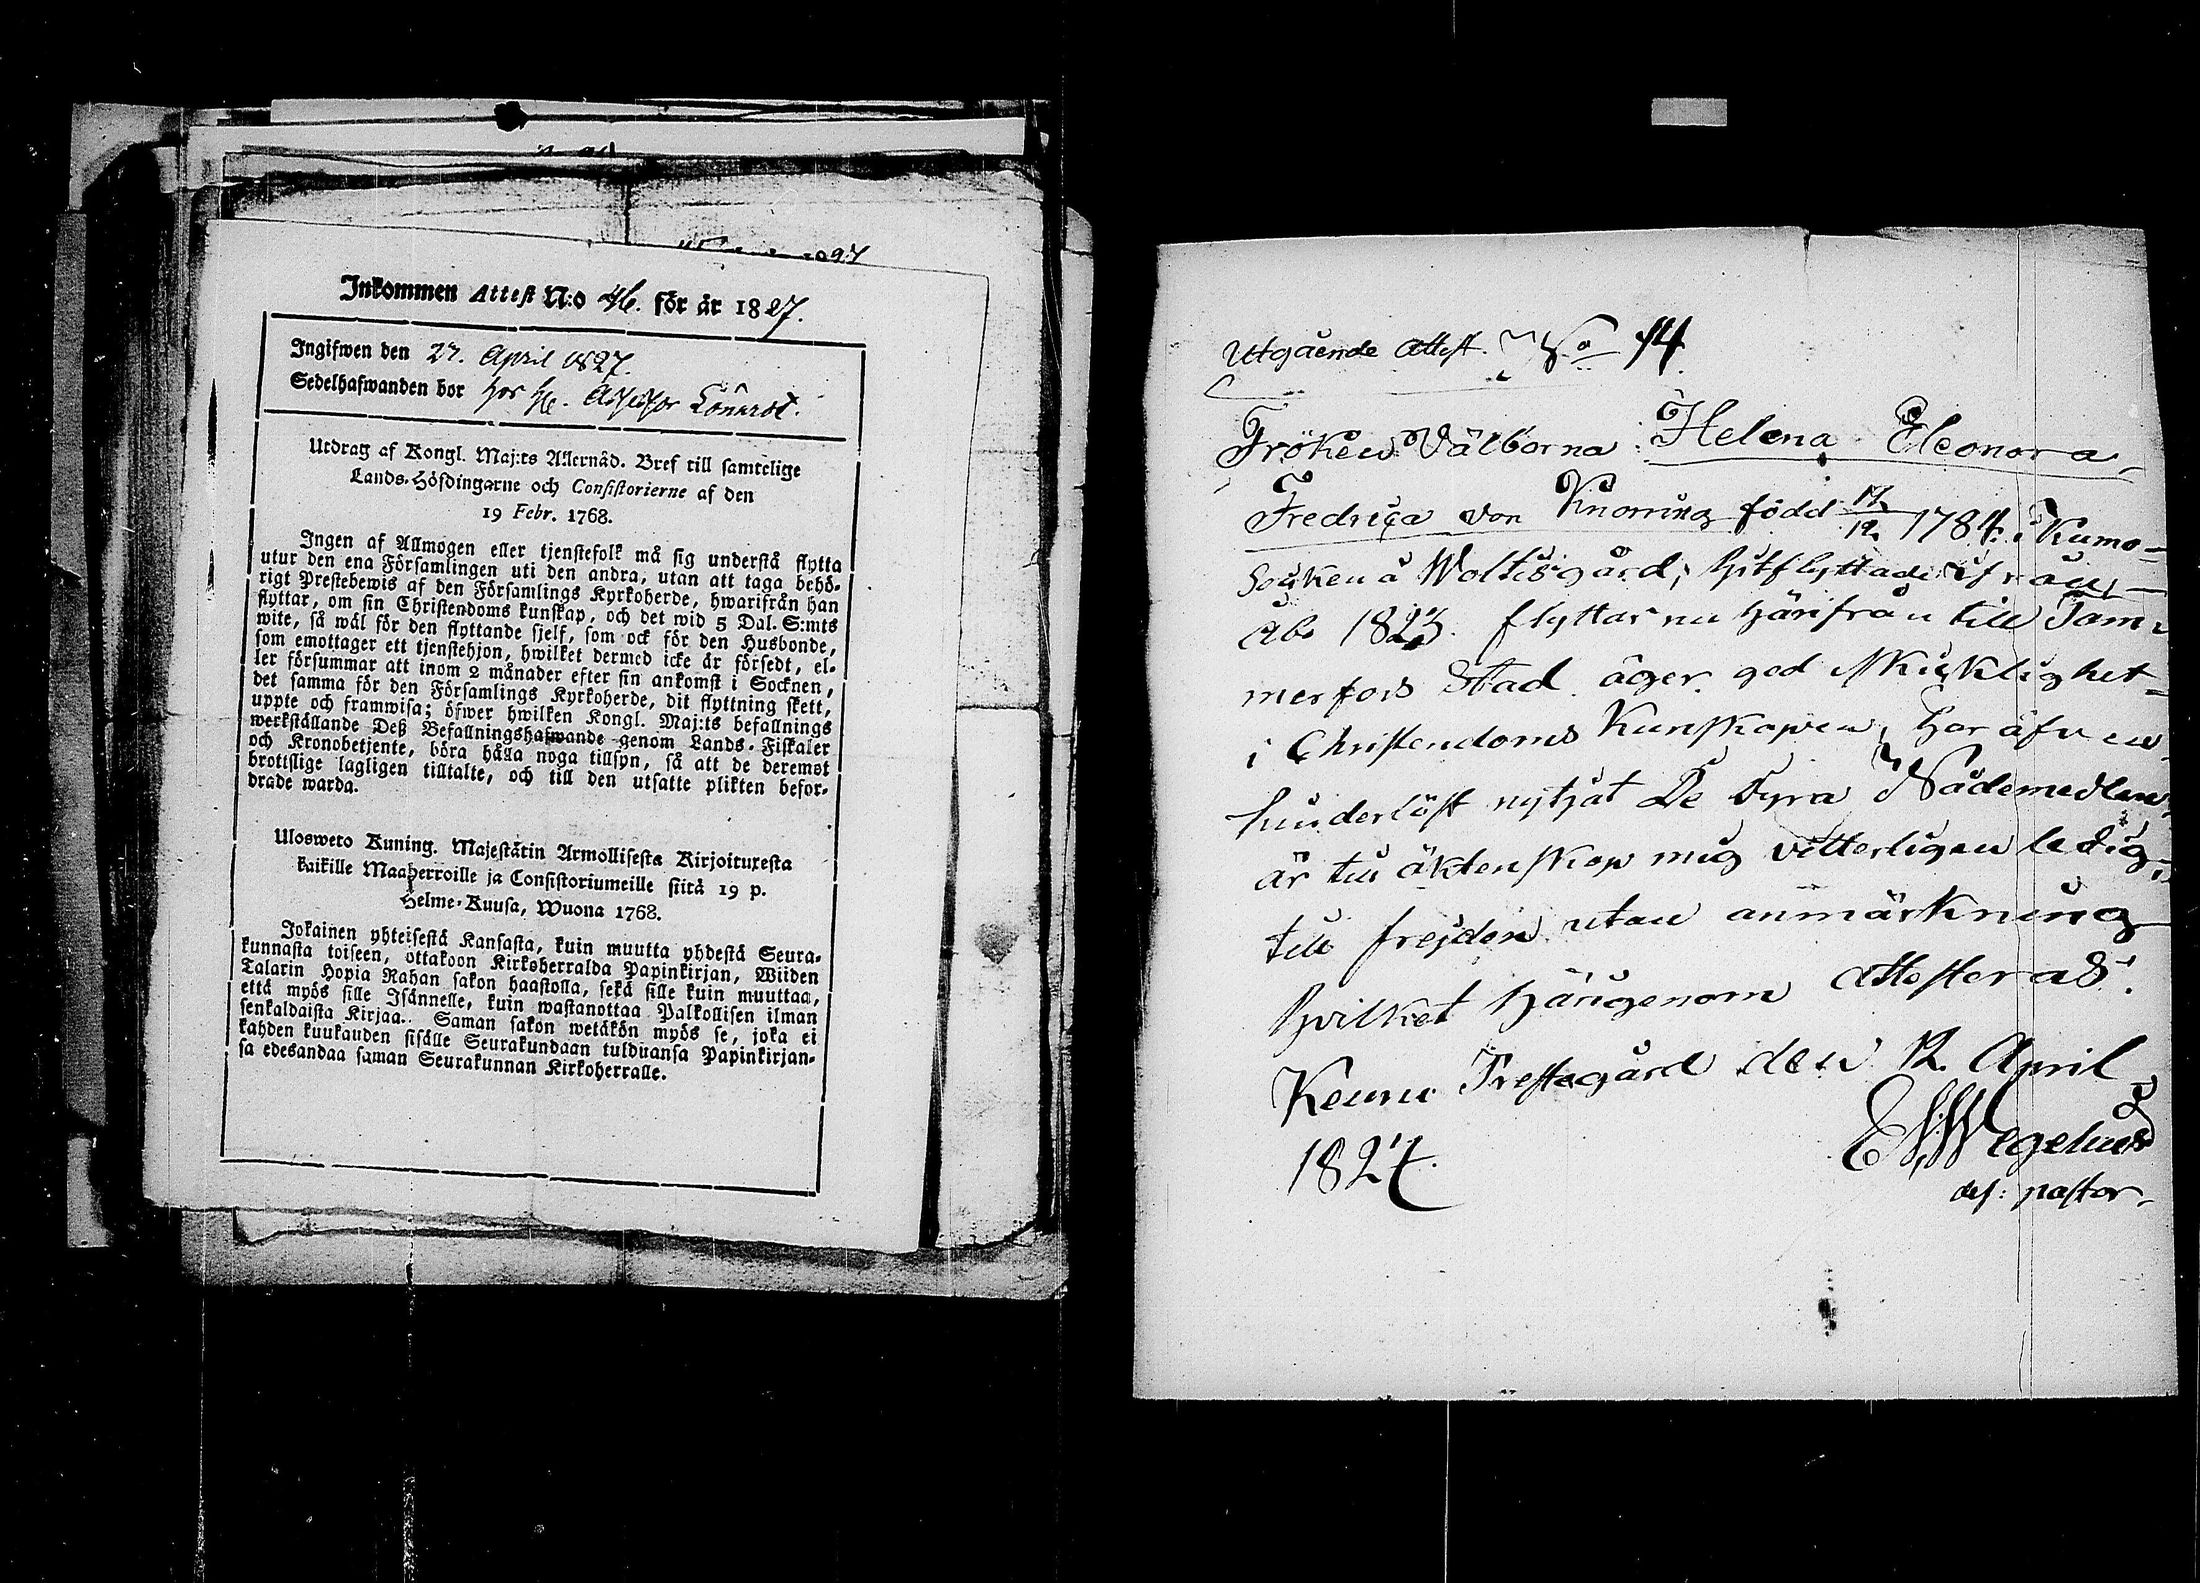 Inkommen Attest N:o 46. för år 1827.
Ingifwen den 27. April 1827.
Sedelhafwanden bor hos H. Assessor
Utdrag af Kongl. Maj:ts Allernåd. Bref till samtelige
Lands-Höfdingarne och Consistorierne af den
19 Febr. 1768.
Ingen af Allmogen eller tjenstefolk må sig understå flytta
utur den ena Församlingen uti den andra, utan att taga behö-
rigt Prestebewis af den Församlings Kyrkoherde, hwarifrån han
flyttar, om sin Christendoms kunskap, och det wid 5 Dal. S:mts
wite, så wäl för den flyttande sjelf, som ock för den Husbonde,
som emottager ett tjenstehjon, hwilket dermed icke är försedt, el-
ler försummar att inom 2 månader efter sin ankomst i Socknen,
det samma för den Församlings Kyrkoherde, dit flyttning skett,
uppte och framwisa; öfwer hwilken Kongl. Maj:ts befallnings
werkställande Deß Befallningshafwande genom Lands-Fiskaler
och Kronobetjente, böra hålla noga tillsyn, så att de deremot
brottslige lagligen tilltalte, och till den utsatte plikten befor-
drade warda.
Ulosweto Kuning. Majestätin Armollisesta Kirjoituxesta
kaikille Maaherroille ja Consistoriumeille siitä 19 p.
Helme-Kuusa, Wuona 1768.
Jokainen yhteisestä Kansasta, kuin muutta yhdestä Seura-
kunnasta toiseen, ottakoon Kirkoherralda Papinkirjan, Wiiden
Talarin Hopia Rahan sakon haastolla, sekä sille kuin muuttaa,
että myös sille Isännelle, kuin wastanottaa Palkollisen ilman
senkaldaista Kirjaa. Saman sakon wetäkön myös se, joka ei
kahden kuukauden sisälle Seurakundaan tulduansa Papinkirjan-
sa edesandaa saman Seurakunnan Kirkoherralle.
Utgående Attest. No 14
Fröken Välborna Helena Eleonora
Fredrica von Knorring född 17/12 1784 i Kumo-
Socken å Woltisgård; hitflyttade ifrån
Åbo 1823. flyttar nu härifrån till Tam-
merfors Stad. äger god skicklighet
i Christendoms Kunskapen, har äfven
hinderlöst nytjat De Dyra Nådemedlen,
är till äktenskap mig vitterligen ledig,
till frejden utan anmärkning
Hvilket härigenom attesteras.
Keuru Prestegård den 12. April
1827.
Wegelius
def: pastor